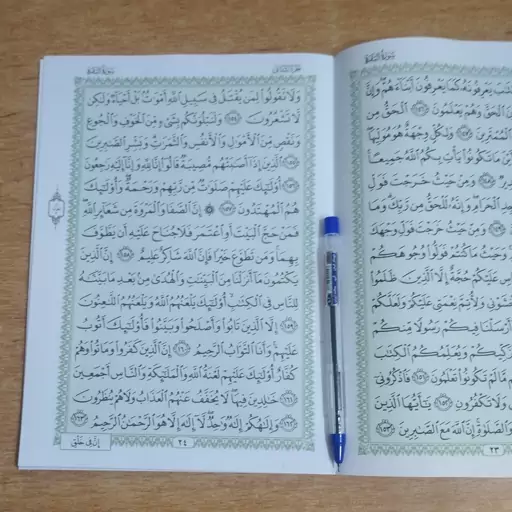 سُورَةُ البَقَرَةِ
يَعْرِفُونَهُۥ كَمَا يَعْرِفُونَ أَبْنَآءَهُمْ وَإِنَّ
ٱلْحَقَّ وَهُمْ يَعْلَمُونَ ۝١٤٦ ٱلْحَقُّ مِن
ٱلْمُمْتَرِينَ ۝١٤٧ وَلِكُلٍّ وِجْهَةٌ هُوَ مُوَلِّيهَا
مَا تَكُونُوا۟ يَأْتِ بِكُمُ ٱللَّهُ جَمِيعًا
۝١٤٨ وَمِنْ حَيْثُ خَرَجْتَ فَوَلِّ
ٱلْحَرَامِ وَإِنَّهُۥ لَلْحَقُّ مِن رَّبِّكَ وَمَا
۝١٤٩ وَمِنْ حَيْثُ خَرَجْتَ فَوَلِّ وَجْهَكَ
وَحَيْثُ مَا كُنتُمْ فَوَلُّوا۟ وُجُوهَكُمْ
عَلَيْكُمْ حُجَّةٌ إِلَّا ٱلَّذِينَ ظَلَمُوا۟
وَلِأُتِمَّ نِعْمَتِى عَلَيْكُمْ وَلَعَلَّكُمْ
أَرْسَلْنَا فِيكُمْ رَسُولًا مِّنكُمْ
وَيُعَلِّمُكُمُ ٱلْكِتَٰبَ
مَّا لَمْ تَكُونُوا۟ تَعْلَمُونَ ۝١٥١ فَٱذْكُرُونِىٓ
وَلَا تَكْفُرُونِ ۝١٥٢ يَٰٓأَيُّهَا ٱلَّذِينَ
وَٱلصَّلَوٰةِ إِنَّ ٱللَّهَ مَعَ ٱلصَّٰبِرِينَ ۝١٥٣
٢٣
سُورَةُ البَقَرَةِ
وَلَا تَقُولُوا۟ لِمَن يُقْتَلُ فِى سَبِيلِ ٱللَّهِ أَمْوَٰتٌۢ بَلْ أَحْيَآءٌ وَلَٰكِن
لَّا تَشْعُرُونَ ۝١٥٤ وَلَنَبْلُوَنَّكُم بِشَىْءٍ مِّنَ ٱلْخَوْفِ وَٱلْجُوعِ
وَنَقْصٍ مِّنَ ٱلْأَمْوَٰلِ وَٱلْأَنفُسِ وَٱلثَّمَرَٰتِ وَبَشِّرِ ٱلصَّٰبِرِينَ
۝١٥٥ ٱلَّذِينَ إِذَآ أَصَٰبَتْهُم مُّصِيبَةٌ قَالُوٓا۟ إِنَّا لِلَّهِ وَإِنَّآ إِلَيْهِ رَٰجِعُونَ
۝١٥٦ أُو۟لَٰٓئِكَ عَلَيْهِمْ صَلَوَٰتٌ مِّن رَّبِّهِمْ وَرَحْمَةٌ وَأُو۟لَٰٓئِكَ
هُمُ ٱلْمُهْتَدُونَ ۝١٥٧ ۞ إِنَّ ٱلصَّفَا وَٱلْمَرْوَةَ مِن شَعَآئِرِ ٱللَّهِ
فَمَنْ حَجَّ ٱلْبَيْتَ أَوِ ٱعْتَمَرَ فَلَا جُنَاحَ عَلَيْهِ أَن يَطَّوَّفَ
بِهِمَا وَمَن تَطَوَّعَ خَيْرًا فَإِنَّ ٱللَّهَ شَاكِرٌ عَلِيمٌ ۝١٥٨ إِنَّ ٱلَّذِينَ
يَكْتُمُونَ مَآ أَنزَلْنَا مِنَ ٱلْبَيِّنَٰتِ وَٱلْهُدَىٰ مِنۢ بَعْدِ مَا بَيَّنَّٰهُ
لِلنَّاسِ فِى ٱلْكِتَٰبِ أُو۟لَٰٓئِكَ يَلْعَنُهُمُ ٱللَّهُ وَيَلْعَنُهُمُ ٱللَّٰعِنُونَ
۝١٥٩ إِلَّا ٱلَّذِينَ تَابُوا۟ وَأَصْلَحُوا۟ وَبَيَّنُوا۟ فَأُو۟لَٰٓئِكَ أَتُوبُ
عَلَيْهِمْ وَأَنَا ٱلتَّوَّابُ ٱلرَّحِيمُ ۝١٦٠ إِنَّ ٱلَّذِينَ كَفَرُوا۟ وَمَاتُوا۟ وَهُمْ
كُفَّارٌ أُو۟لَٰٓئِكَ عَلَيْهِمْ لَعْنَةُ ٱللَّهِ وَٱلْمَلَٰٓئِكَةِ وَٱلنَّاسِ أَجْمَعِينَ
۝١٦١ خَٰلِدِينَ فِيهَا لَا يُخَفَّفُ عَنْهُمُ ٱلْعَذَابُ وَلَا هُمْ يُنظَرُونَ
۝١٦٢ وَإِلَٰهُكُمْ إِلَٰهٌ وَٰحِدٌ لَّآ إِلَٰهَ إِلَّا هُوَ ٱلرَّحْمَٰنُ ٱلرَّحِيمُ ۝١٦٣
٢٤
إِنَّ فِى خَلْقِ